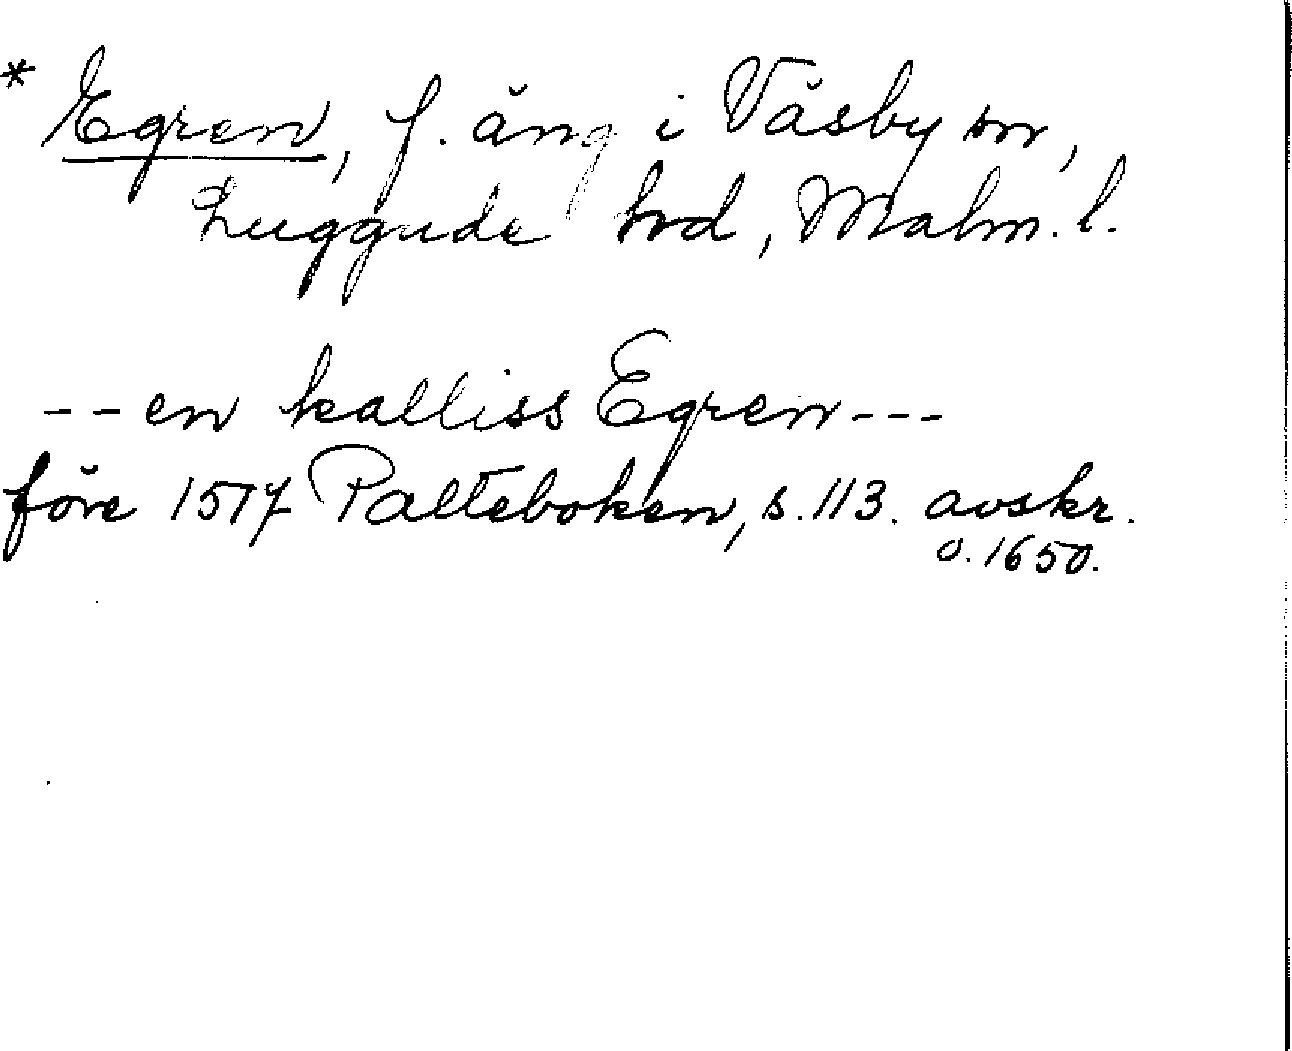 * Egren, f. äng i Väsby sn,
Luggude hd, Malm. l.
-- en kalliss Egren ---
före 1517 Palteboken, s. 113. avskr.
o. 1650.